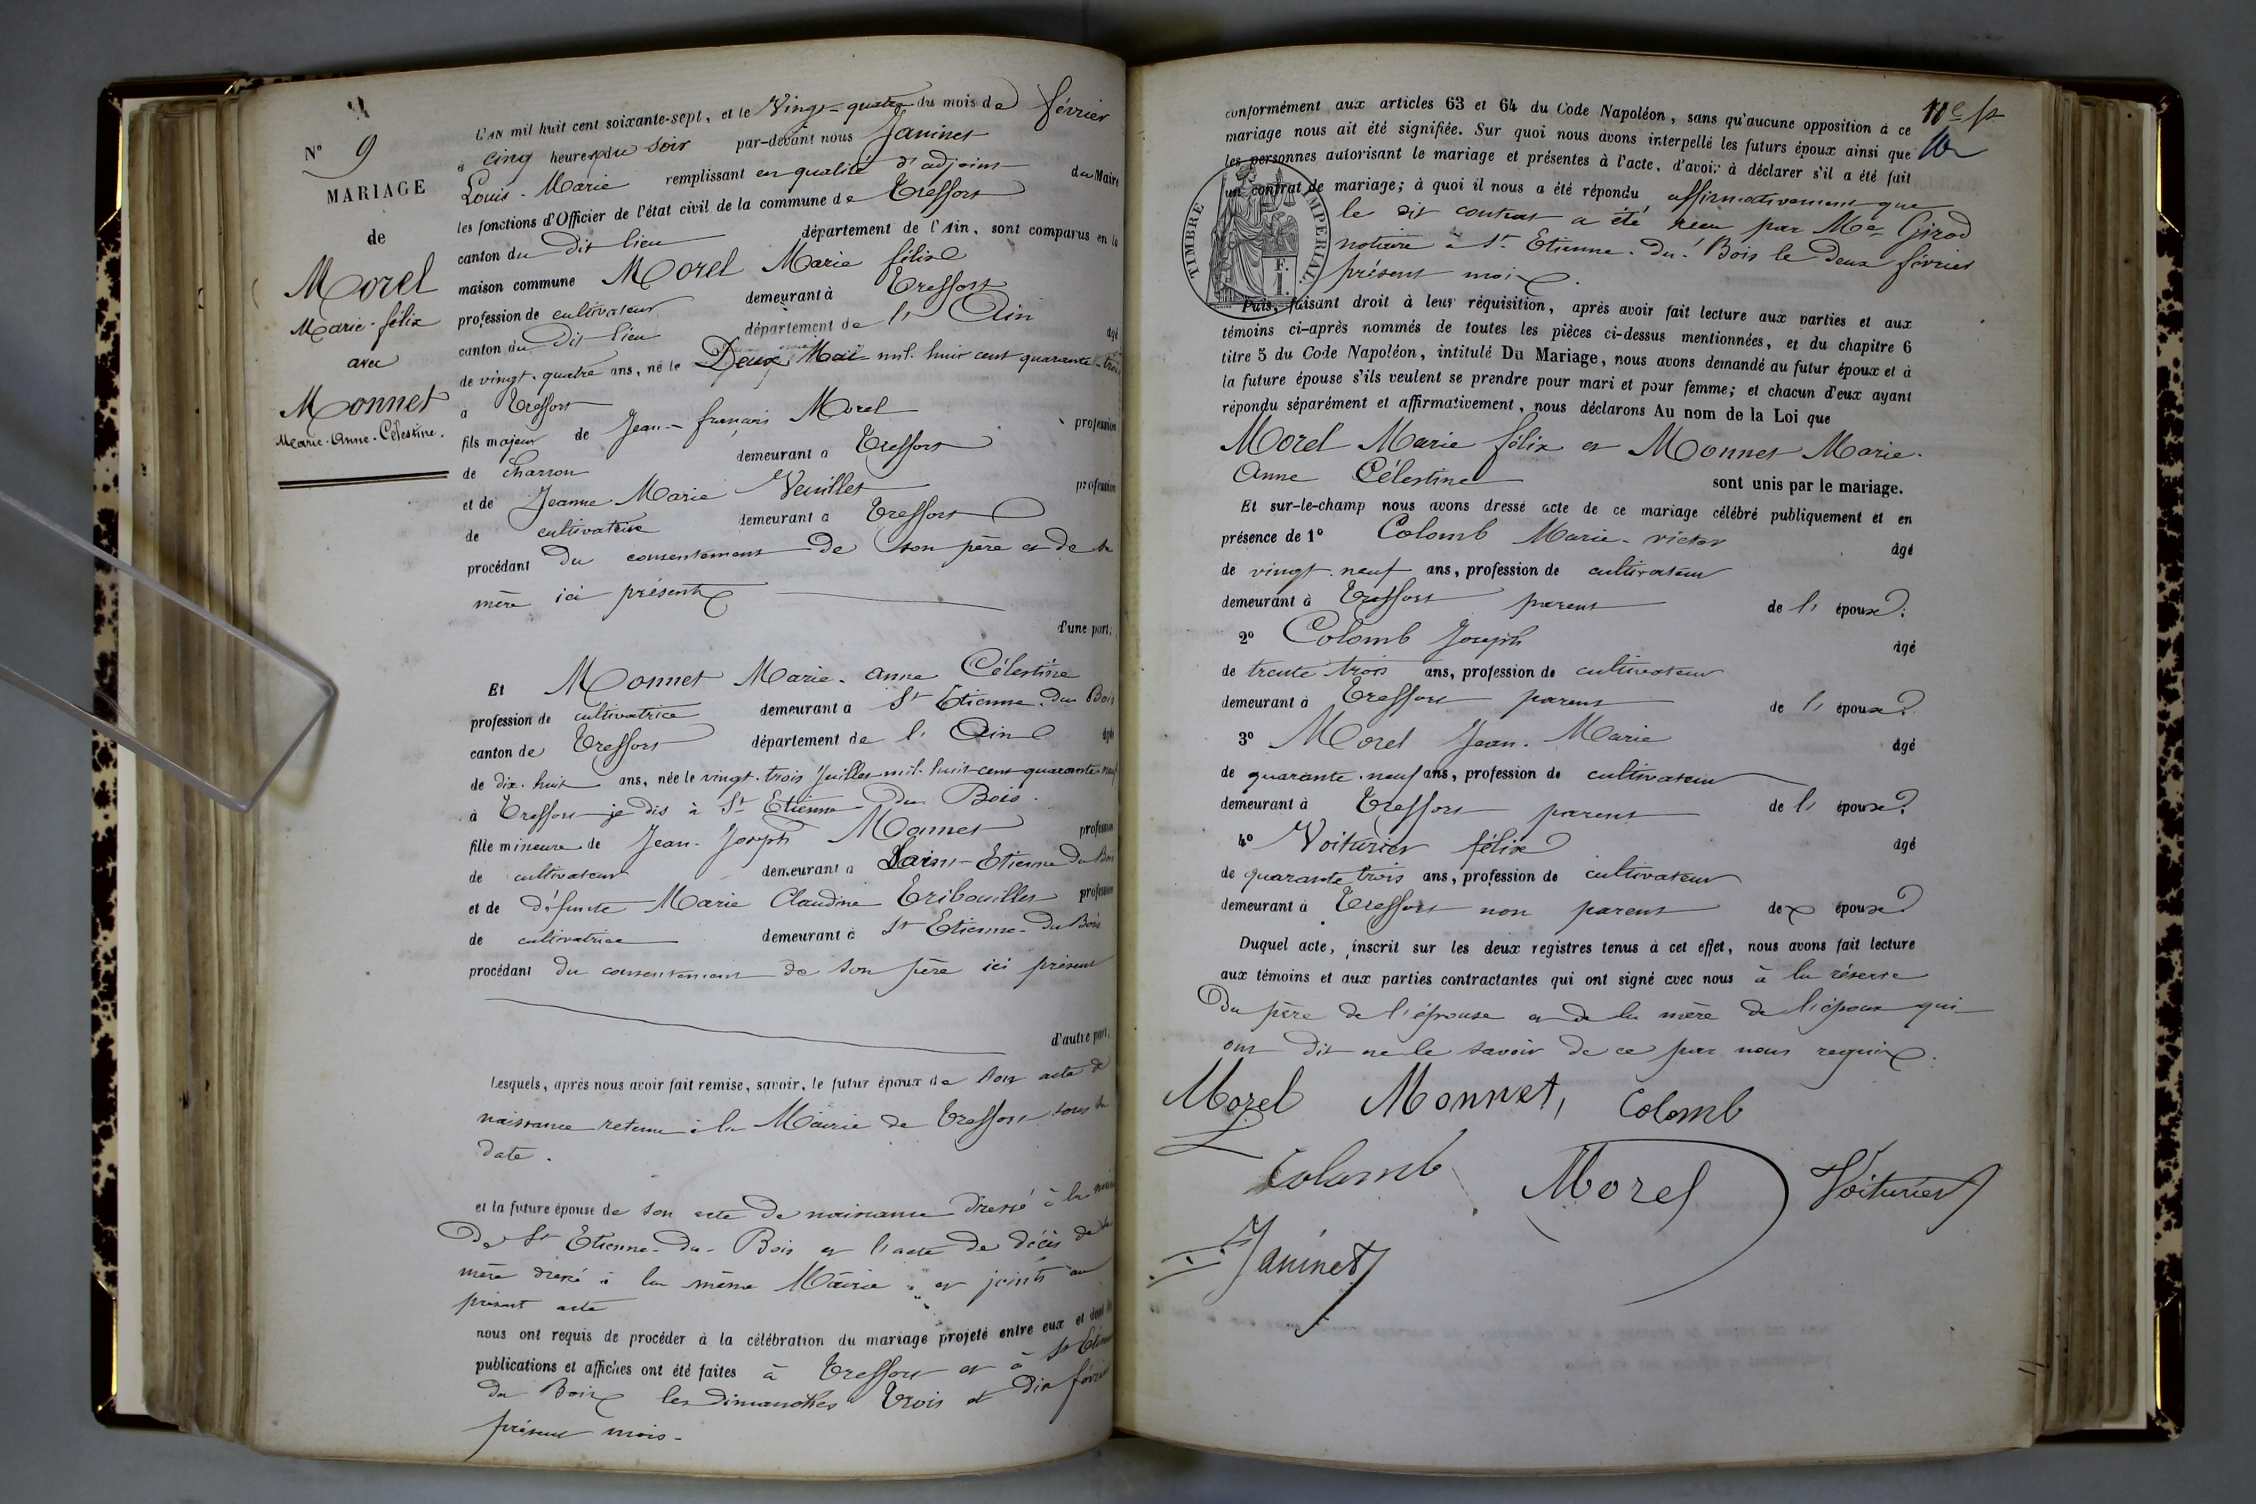 N° 9
MARIAGE
de
Morel
Marie-félix
avec
Monnet
Marie-Anne-Célestine.
L'AN mil huit cent soixante-sept, et le Vingt-quatre du mois de février
à cinq heures du soir par-devant nous Janinet
Louis-Marie remplissant en qualité d'adjoint du Maire
les fonctions d'Officier de l'état civil de la commune de Treffort
canton du dit lieu département de l'Ain, sont comparus en la
maison commune Morel Marie félix
profession de cultivateur demeurant à Treffort
canton du dit lieu département de l'Ain âgé
de vingt-quatre ans, né le Deux Mai mil huit cent quarante-trois
à Treffort
fils majeur de Jean-françois Morel profession
de charron demeurant à Treffort
et de Jeanne Marie Veuillet profession
de cultivatrice demeurant à Treffort
procédant du consentement de son père et de sa
mère ici présents
d'une part;
Et Monnet Marie-anne Célestine
profession de cultivatrice demeurant à St Etienne-du Bois
canton de Treffort département de l'Ain âgée
de dix-huit ans, née le vingt-trois Juillet mil-huit-cent quarante-neuf
à Treffort je dis à St Etienne du Bois.
fille mineure de Jean-Joseph Monnet profession
de cultivateur demeurant à Saint-Etienne du Bois
et de défunte Marie Claudine Tribouillet profession
de cultivatrice demeurant à St Etienne-du Bois
procédant du consentement de son père ici présent
d'autre part;
Lesquels, après nous avoir fait remise, savoir, le futur époux de son acte de
naissance retenu à la Mairie de Treffort sous sa
date.
et la future épouse de son acte de naissance dressé à la mairie
De St Etienne-du-Bois et l'acte de décès de sa
mère dressé à la même Mairie et joints au
présent acte
nous ont requis de procéder à la célébration du mariage projeté entre eux et dont les
publications et affiches ont été faites à Treffort et à St Etienne
du Bois les dimanches Trois et dix février
présent mois.
11e
conformément aux articles 63 et 64 du Code Napoléon, sans qu'aucune opposition à ce
mariage nous ait été signifiée. Sur quoi nous avons interpellé les futurs époux ainsi que
les personnes autorisant le mariage et présentes à l'acte, d'avoir à déclarer s'il a été fait
un contrat de mariage; à quoi il nous a été répondu affirmativement que
le dit contrat a été reçu par Me Girod
notaire à St Etienne-du-Bois le deux février
présent mois.
TIMBRE IMPERIAL
F.
1.
Puis, faisant droit à leur réquisition, après avoir fait lecture aux parties et aux
témoins ci-après nommés de toutes les pièces ci-dessus mentionnées, et du chapitre 6
titre 5 du Code Napoléon, intitulé Du Mariage, nous avons demandé au futur époux et à
la future épouse s'ils veulent se prendre pour mari et pour femme; et chacun d'eux ayant
répondu séparément et affirmativement, nous déclarons Au nom de la Loi que
Morel Marie félix et Monnet Marie-
Anne Célestine sont unis par le mariage.
Et sur-le-champ nous avons dressé acte de ce mariage célébré publiquement et en
présence de 1° Colomb Marie-victor âgé
de vingt-neuf ans, profession de cultivateur
demeurant à Treffort parent de l' époux.
2° Colomb Joseph âgé
de trente trois ans, profession de cultivateur
demeurant à Treffort parent de l' époux
3° Morel Jean-Marie âgé
de quarante-neuf ans, profession de cultivateur
demeurant à Treffort parent de l' époux
4° Voiturier félix âgé
de quarante trois ans, profession de cultivateur
demeurant à Treffort non parent de époux
Duquel acte, inscrit sur les deux registres tenus à cet effet, nous avons fait lecture
aux témoins et aux parties contractantes qui ont signé avec nous à la réserve
Du père de l'épouse et de la mère de l'époux qui
ont dit ne le savoir de ce par nous requis.
Morel Monnet, Colomb
Colomb Morel Voiturier
Janinet